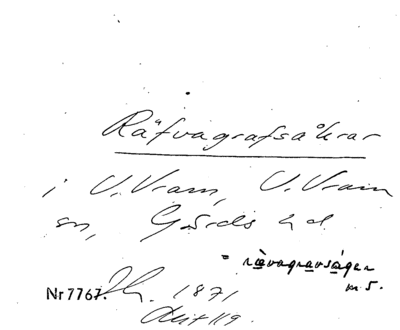 Räfvagrafsåkrar
i V. Vram, V. Vram
sn, Gärds hd.
= rävagravsåger
m 5.
Nr 7767. 1871
Akt 119.